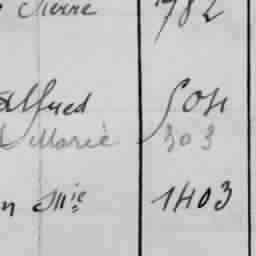 Pierre 782
Alfred 504
Marie 303
n Mie 1403